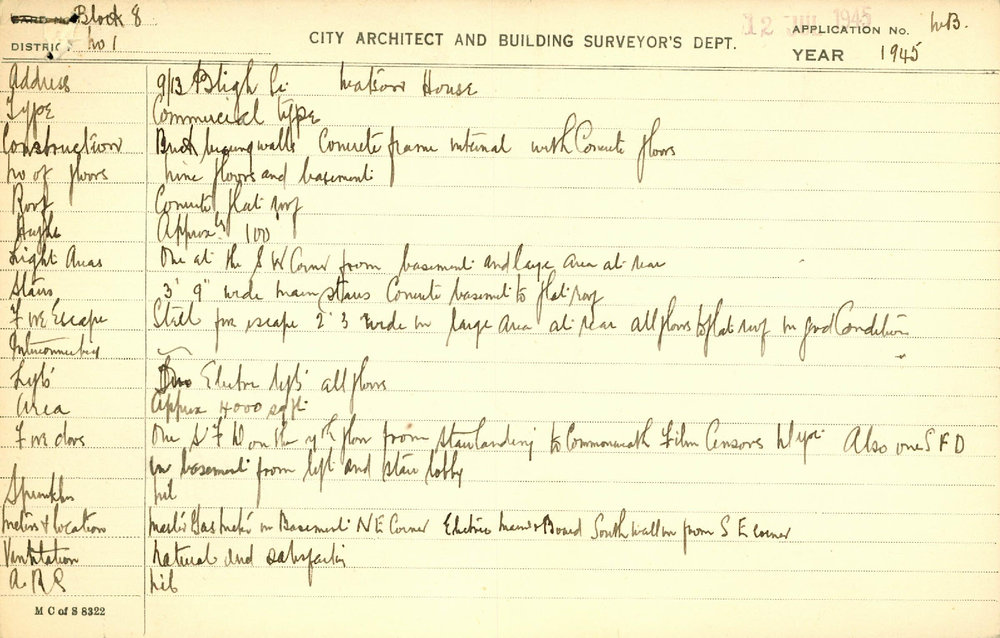 CARD No. Block 8
DISTRICT No 1
CITY ARCHITECT AND BUILDING SURVEYOR'S DEPT.
12 JUL 1945
APPLICATION No. W.B.
YEAR 1945
Address 9/13 Bligh St. Watson House
Type Commercial type
Construction Brick bearing walls Concrete frame internal with Concrete floors
No of floors Nine floors and basement
Roof Concrete flat roof
Height Approx 100'
Light Areas One at the S W Corner from basement and large area at rear
Stairs 3' 9" wide main stairs Concrete basement to flat roof
Fire Escape Steel fire escape 2' 3 wide in large area at rear all floors to flat roof in good Condition
Interconnected
Lifts Two Electric lifts all floors
Area Approx 4000 sq ft
Fire doors One S F D on the 7th floor from stair landing to Commonwealth Film Censors Dept. Also one S F D
in basement from lift and stair lobby
Sprinkler Nil
Meters & location Master Gas Meter in Basement N E Corner Electric Main & Board South wall in from S E corner
Ventilation Natural and satisfactory
A.R.P. Nil
M C of S 8322